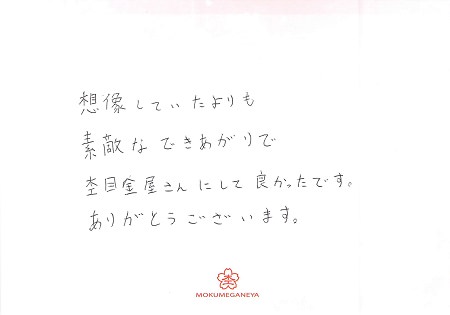 想像していたよりも
素敵なできあがりで
杢目金屋さんにして良かったです。
ありがとうございます。
MOKUMEGANEYA